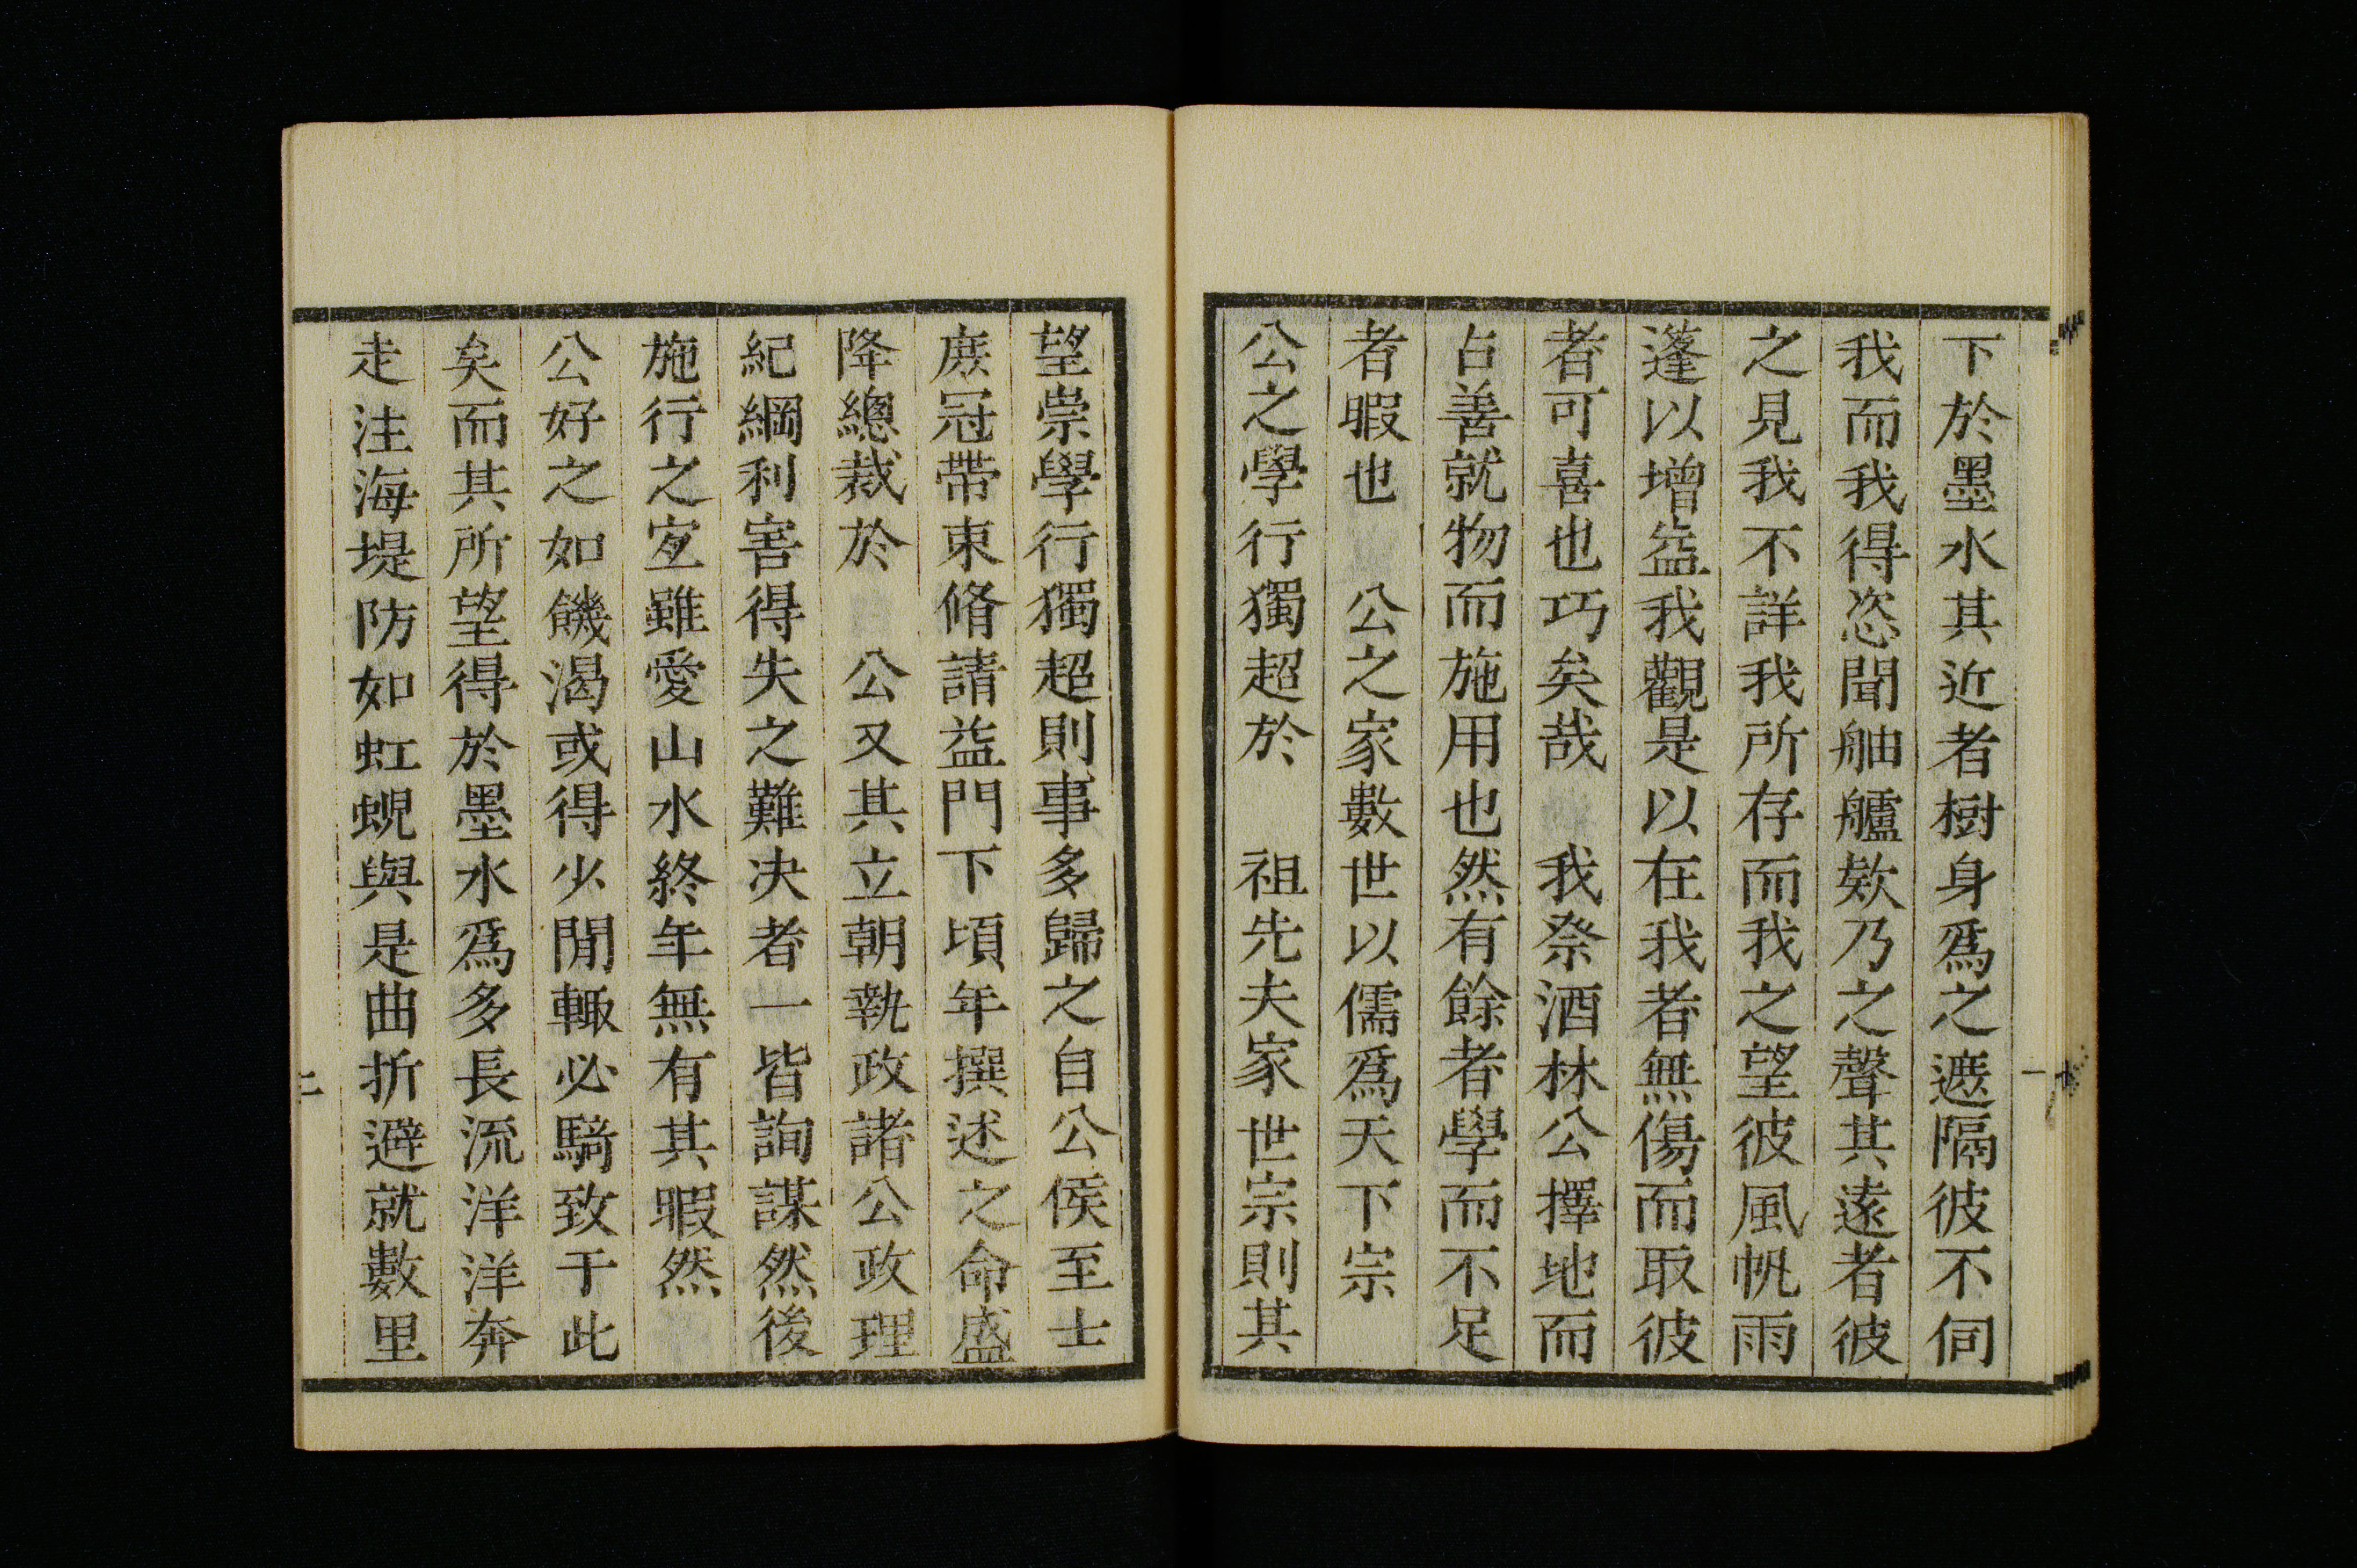 下於墨水其近者樹身爲之遮隔彼不伺
我而我得恣聞舳艫欸乃之聲其遠者彼
之見我不詳我所存而我之望彼風帆雨
蓬以增益我觀是以在我者無傷而取彼
者可喜也巧矣哉　我祭酒林公擇地而
占善就物而施用也然有餘者學而不足
者暇也　公之家數世以儒爲天下宗
公之學行獨超於　祖先夫家世宗則其
望崇學行獨超則事多歸之自公侯至士
庶冠帶束脩請益門下頃年撰述之命盛
降總裁於　公又其立朝執政諸公政理
紀綱利害得失之難决者一皆詢謀然後
施行之寔雖愛山水終年無有其暇然
公好之如饑渴或得少閒輙必騎致于此
矣而其所望得於墨水爲多長流洋洋奔
走注海堤防如虹蜺與是曲折避就數里